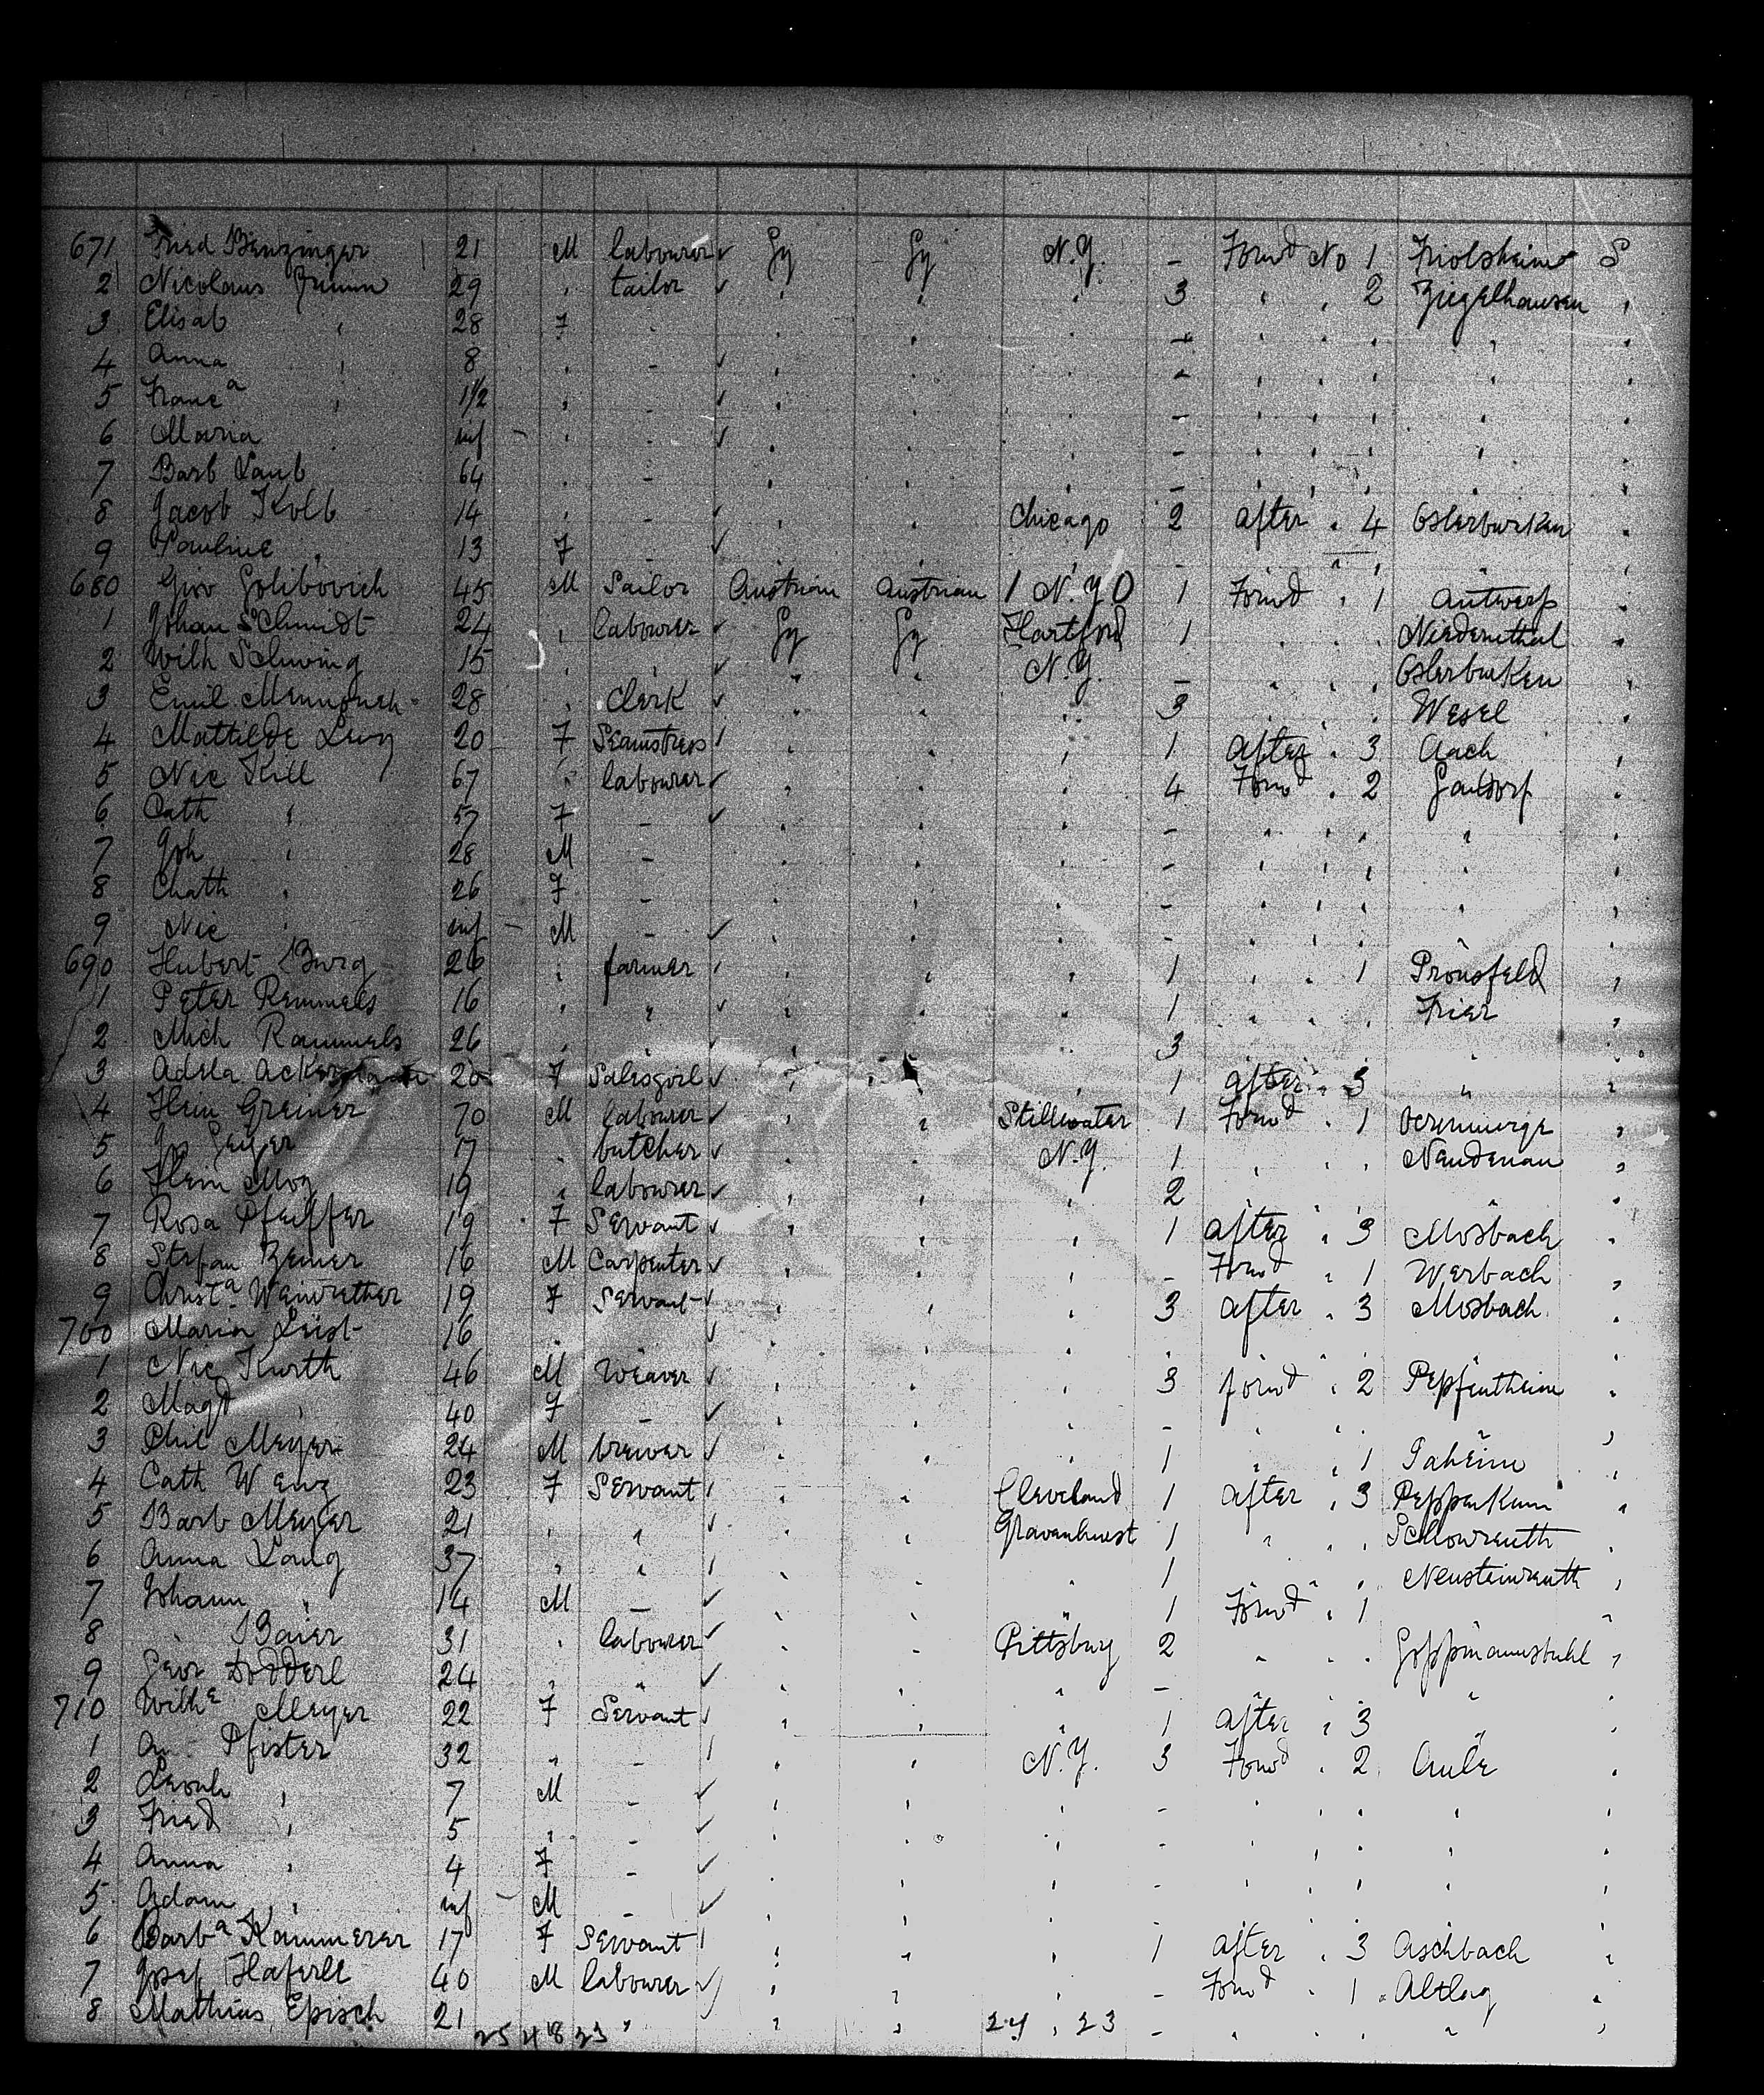 671 Fried Benzinger 21 M labourer Gy Gy N.Y. - Forwd No 1 Friolsheim S
2 Nicolaus 29 " tailor " " " 3 " " 2 Ziegelhausen "
3 Elisab " 28 F - " " " - " " " " "
4 Anna " 8 " - " " " - " " " " "
5 Franca " 1 1/2 " - " " " - " " " " "
6 Maria inf - " - " " " - " " " " "
7 Barb Laub 64 " - " " " - " " " " "
8 Jacob Kolb 14 " - " " Chicago 2 after " 4 Osterburken "
9 Pauline " 13 F - - " "
680 Giov Golibovich 45 M Sailor Austrian Austrian 1 N.Y 0 1 Forwd " 1 Antwerp "
1 Johan Schmidt 24 " labourer Gy Gy Hartford 1 " " " Niedernthal "
2 Wilh Schwing 15 " " " " N.Y. - " " " Osterburken "
3 Emil 28 " Clerk " " " 3 " " " Wesel "
4 Mathilde Levy 20 F Seamstress " " " 1 after " 3 Aach "
5 Nic Kill 67 " labourer " " " 4 Forwd " 2 "
6 Cath " 57 F - " " " - " " " " "
7 Joh " 28 M - " " " - " " " " "
8 Chath " 26 F - " " " - " " " " "
9 Nic " inf - M - " " " - " " " " "
690 Hubert Burg 26 " farmer " " " 1 " " 1 Pronsfeld "
1 Peter Remmels 16 " " " " " 1 " " " Trier "
2 Mich Rammels 26 " " " " " 3 " " " " "
3 Adela 20 F Salesgirl " " " 1 after " 3 " "
4 Hein Greiner 70 M labourer " " Stillwater 1 Forwd " 1 "
5 Jos Geiger 17 " butcher " " N.Y. 1 " " " Neudenau "
6 Hein Mog 19 " labourer " " " 2 " " " " "
7 Rosa Pfeiffer 19 F Servant " " " 1 after " 3 Mosbach "
8 Stefan Zeiner 16 M Carpenter " " " - Forwd " 1 Werbach "
9 Christa Weinrether 19 F Servant " " " 3 after " 3 Mosbach "
700 Maria Leist 16 " " " " " - " " " " "
1 Nic Kurth 46 M Weaver " " " 3 forwd " 2 "
2 Magd " 40 F - " " " - " " " " "
3 Phil Meyer 24 M brewer " " " 1 " " 1 "
4 Cath Wenz 23 F Servant " " Cleveland 1 after " 3 "
5 Barb Meyer 21 " " " " Gravenhurst 1 " " " Schlowreuth "
6 Anna Lang 37 " " " " " 1 " " " Neusteinreuth "
7 Johann " 14 M - " " " 1 Forwd " 1 "
8 " Baier 31 " labourer " " Pittsburg 2 " " " Goppmannsbuhl "
9 Geor Dodderl 24 " " " " " - " " " " "
710 Wilhe Meyer 22 F Servant " " " 1 after " 3 " "
1 An Pfister 32 " - " " N.Y. 3 Forwd " 2 Aule "
2 Leonh " 7 M - " " " - " " " " "
3 Fried " 5 " - " " " - " " " " "
4 Anna " 4 F - " " " - " " " " "
5 Adam " inf - M - " " " - " " " " "
6 Barba Kammerer 17 F Servant " " " 1 after " 3 Aschbach "
7 Josef Haferll 40 M labourer " " " - Forwd " 1 Altlag "
8 Mathias Episch 21 " " " " - " " " " "
24 . 23